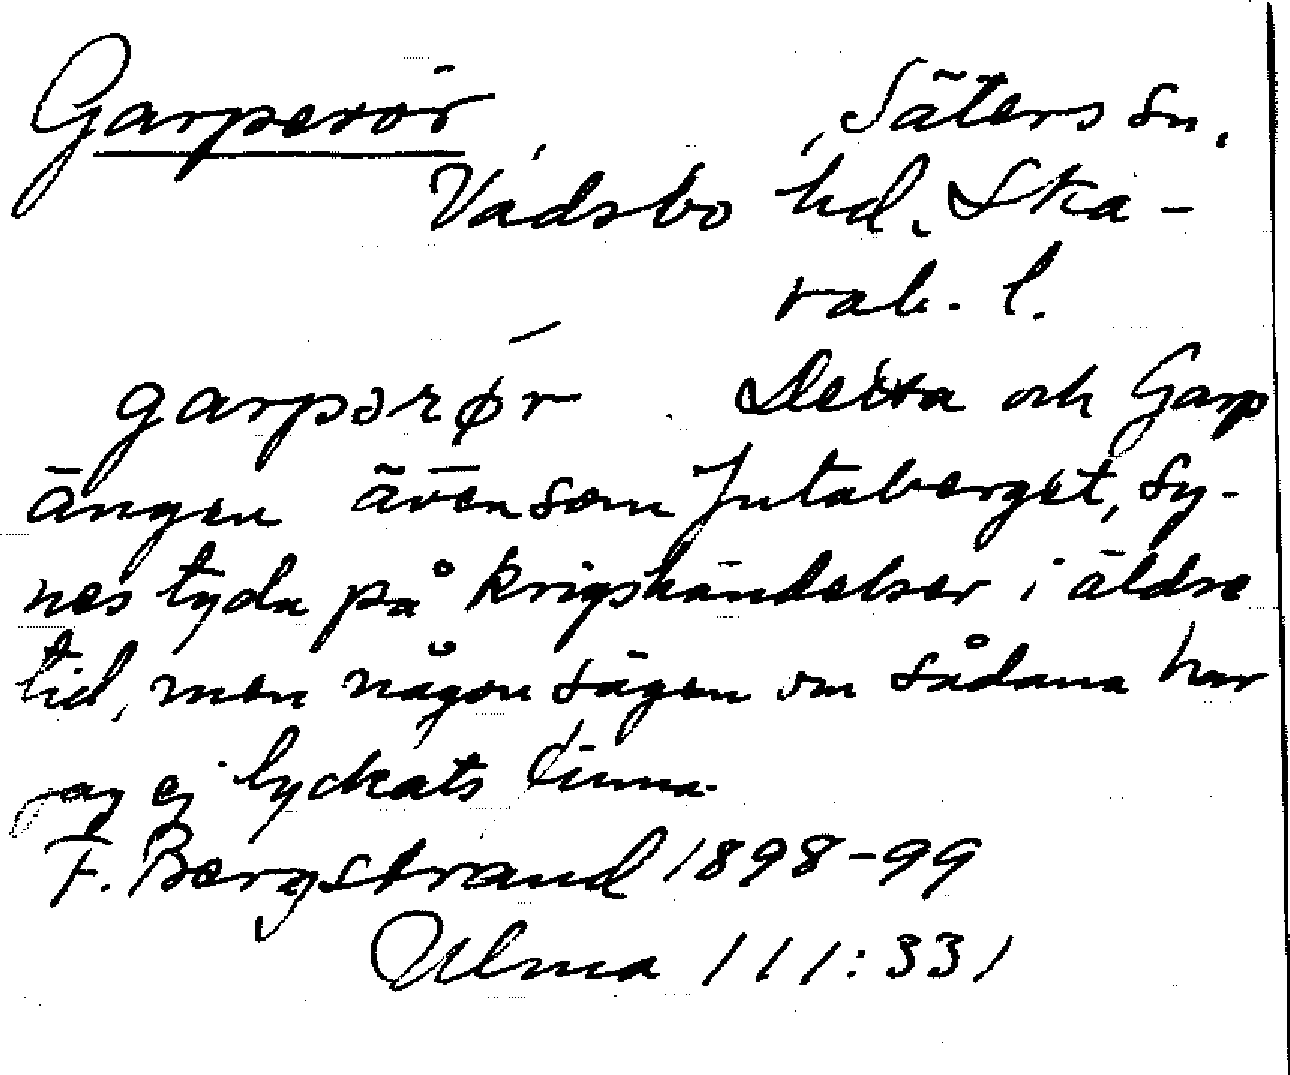 Garperör, Säters sn,
Vadsbo hd. Ska-
rab. l.
garpərør. Detta och Garp
ängen ävensom Jutaberget, sy-
nes tyda på krigshändelser i äldre
tid, men någon sägen om sådana har
jag ej lyckats finna.
F. Bergstrand 1898-99
Ulma 111:331